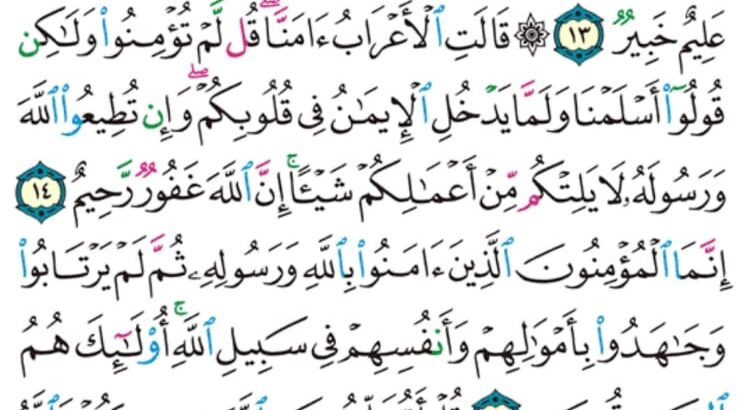 عَلِيمٌ خَبِيرٌ ١٣ ۞ قَالَتِ ٱلْأَعْرَابُ ءَامَنَّاۖ قُل لَّمْ تُؤْمِنُوا۟ وَلَٰكِن
قُولُوٓا۟ أَسْلَمْنَا وَلَمَّا يَدْخُلِ ٱلْإِيمَٰنُ فِى قُلُوبِكُمْۖ وَإِن تُطِيعُوا۟ ٱللَّهَ
وَرَسُولَهُۥ لَا يَلِتْكُم مِّنْ أَعْمَٰلِكُمْ شَيْـًٔاۚ إِنَّ ٱللَّهَ غَفُورٌ رَّحِيمٌ ١٤
إِنَّمَا ٱلْمُؤْمِنُونَ ٱلَّذِينَ ءَامَنُوا۟ بِٱللَّهِ وَرَسُولِهِۦ ثُمَّ لَمْ يَرْتَابُوا۟
وَجَٰهَدُوا۟ بِأَمْوَٰلِهِمْ وَأَنفُسِهِمْ فِى سَبِيلِ ٱللَّهِۚ أُو۟لَٰٓئِكَ هُمُ